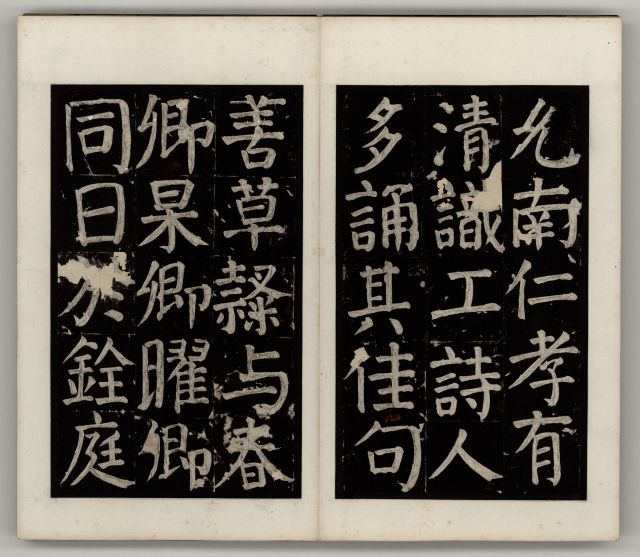 允南仁孝有
清識工詩人
多誦其佳句
善草隸与春
卿杲卿曜卿
同日於銓庭